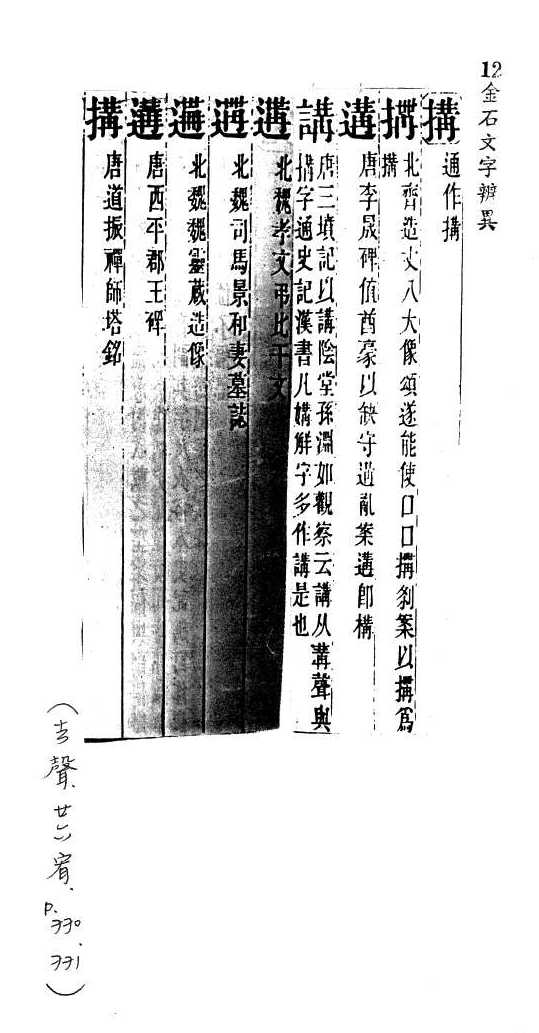 12
金石文字辨異
搆
通作搆
搆 北齊造丈八大像頌遂能使口口搆剏案以搆爲
搆
遘 唐李晟碑值酋豪以缺守遘亂案遘卽構
講 唐三墳記以講陰堂孫淵如觀察云講从冓聲與
搆字通史記漢書凡媾解字多作講是也
遘 北魏孝文弔比干文
遘 北魏司馬景和妻墓誌
遘 北魏魏靈藏造像
遘 唐西平郡王碑
搆 唐道振禪師塔銘
(去聲.廿六宥.
P.330.
331)